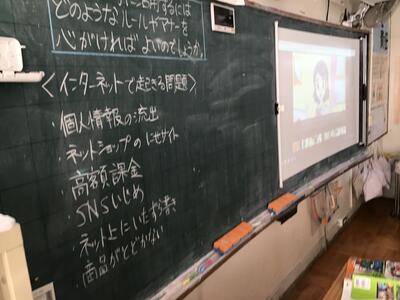 どのようなルールやマナーを
心がければよいのでしょうか。
＜インターネットで起きる問題＞
・個人情報の流出
・ネットショップのにせサイト
・高額課金
・SNSいじめ
・ネット上にいたずら書き
・商品がとどかない